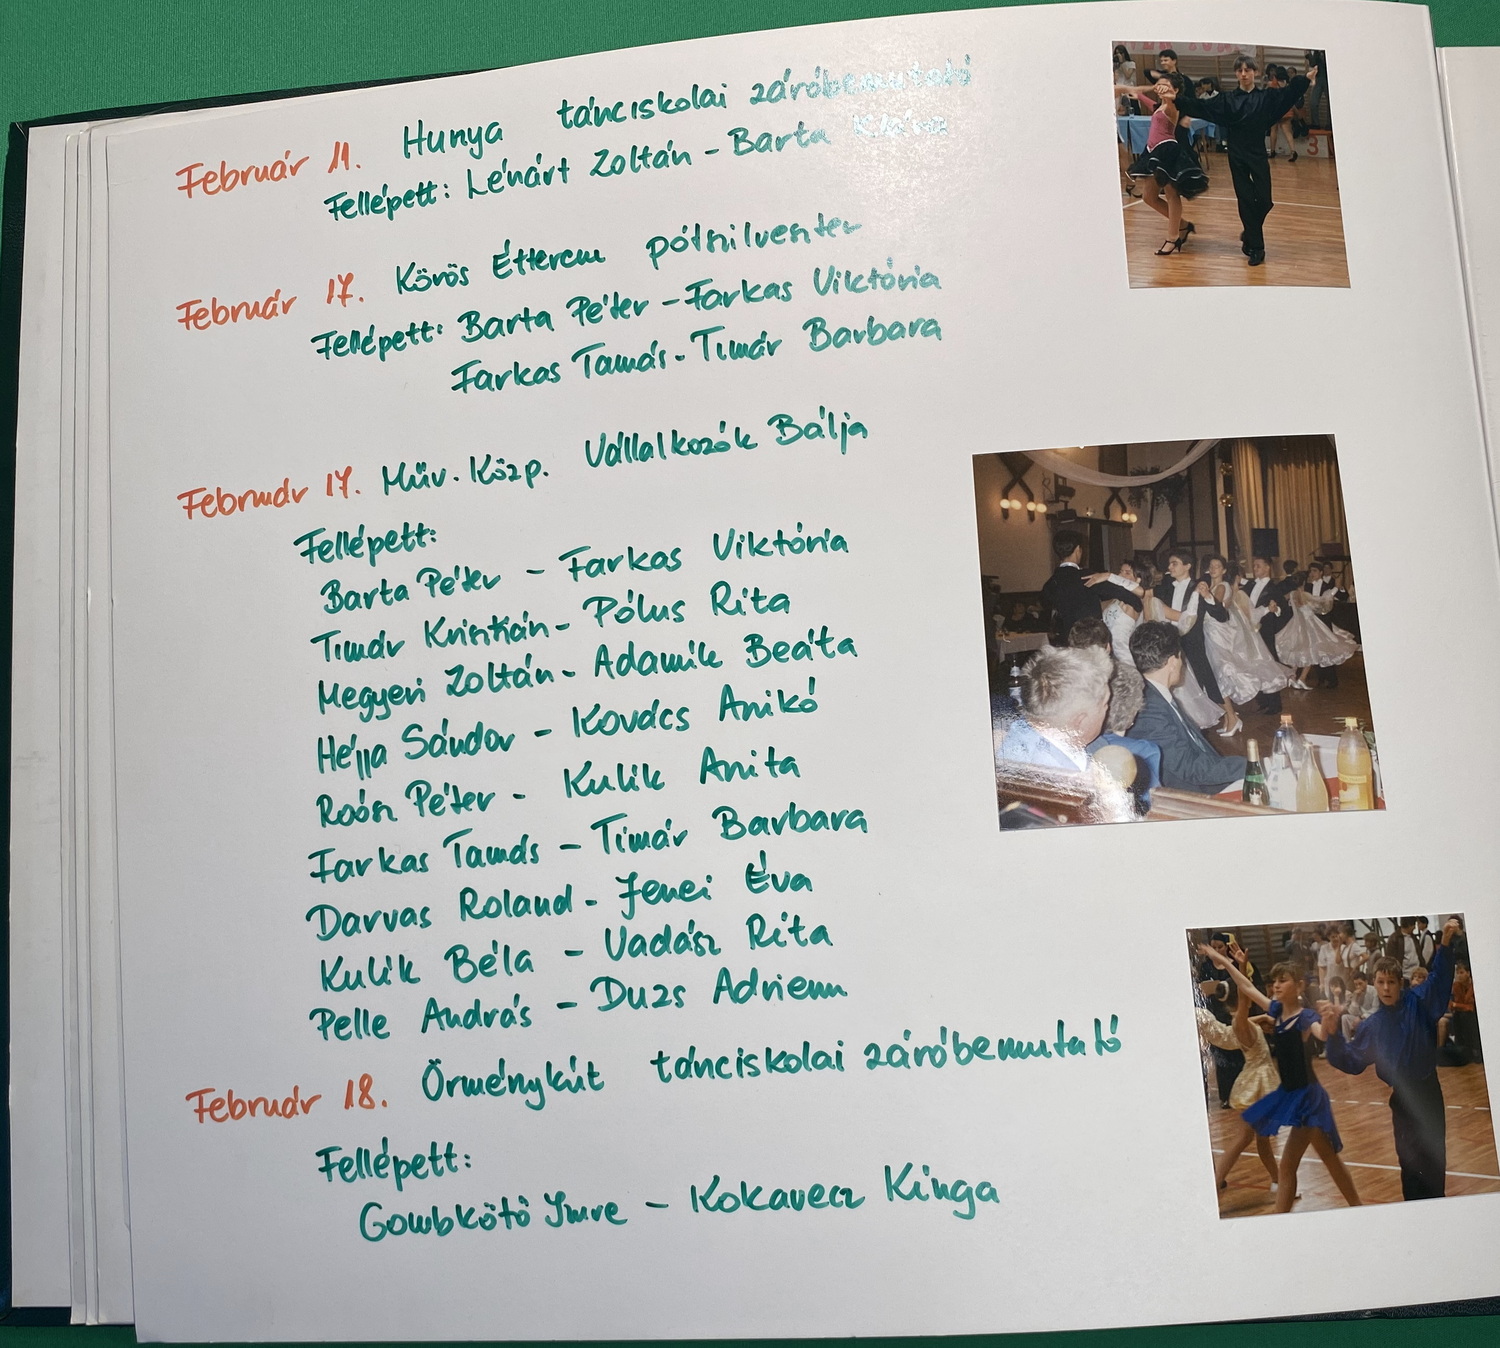 Február 11. Hunya tánciskolai záróbemutató
Fellépett: Lénárt Zoltán - Barta Klára
Február 17. Körös Étterem pótszilveszter
Fellépett: Barta Péter - Farkas Viktória
Farkas Tamás - Tímár Barbara
Február 17. Műv. Közp. Vállalkozók Bálja
Fellépett:
Barta Péter - Farkas Viktória
Tímár Krisztián - Pólus Rita
Megyeri Zoltán - Adamik Beáta
Héjja Sándor - Kovács Anikó
Roósz Péter - Kulik Anita
Farkas Tamás - Tímár Barbara
Darvas Roland - Jenei Éva
Kulik Béla - Vadász Rita
Pelle András - Duzs Adrienn
Február 18. Örménykút tánciskolai záróbemutató
Fellépett:
Gombkötő Imre - Kokavecz Kinga
3